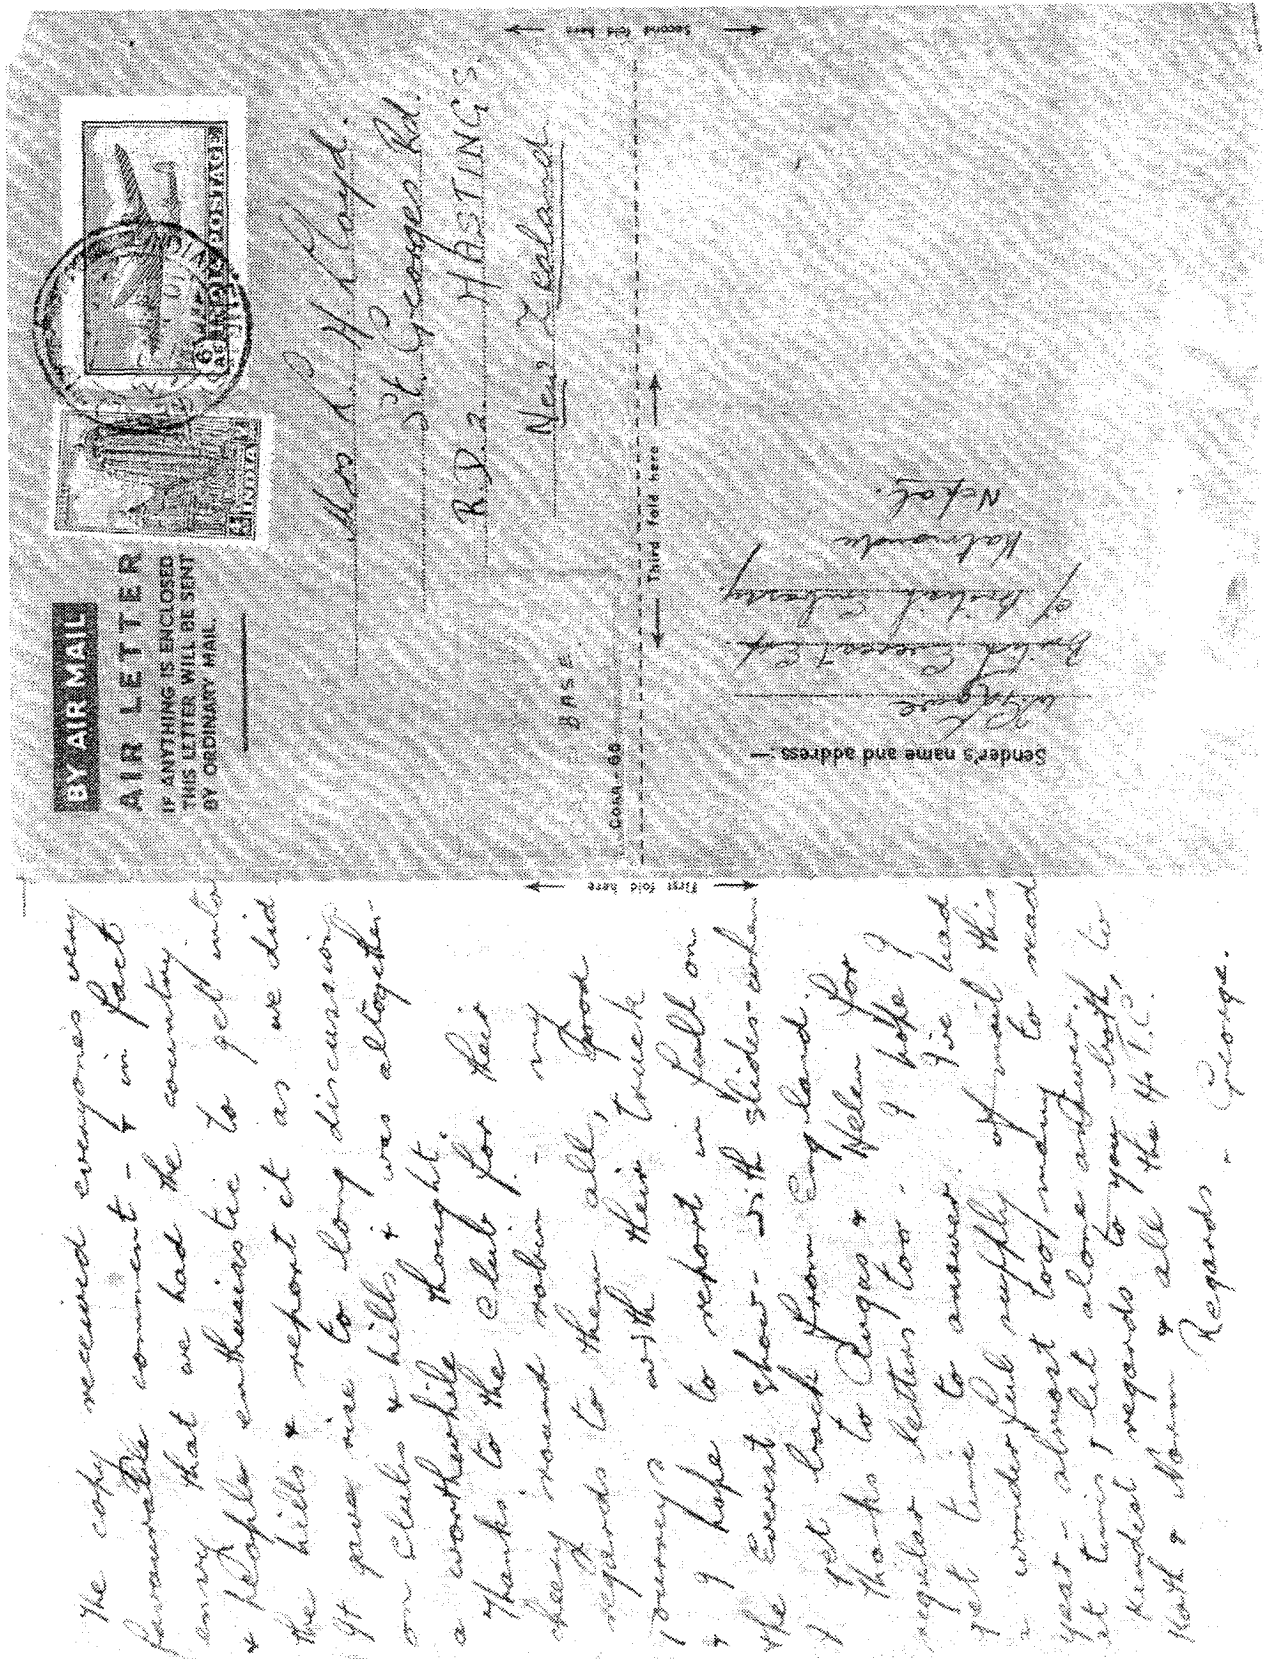 BY AIR MAIL
AIR LETTER
IF ANYTHING IS ENCLOSED
THIS LETTER WILL BE SENT
BY ORDINARY MAIL.
INDIA
6 AS INDIA POSTAGE
Mrs L H Lloyd.
St. Georges Rd.
R.D.2. HASTINGS.
New Zealand
BASE
CORR-68
Second fold here
Third fold here
Sender's name and address:—
British Everest Exp.
c/ British Embassy
Katmandu
Nepal.
First fold here
The copy received everyone's very
favourable comment - & in fact
envy that we had the country
& people enthusiastic to get into
the hills & report it as we did
It gave rise to long discussion
on clubs & hills & was altogether
a worthwhile thought.
Thanks to the Club for their
cheery round robin - my
regards to them all, good
journeys with their truck
& I hope to report in full on
the Everest show - with slides - when
I get back from England.
Thanks to Angus & Helen for
regular letters too - I hope I
get time to answer. I've had
a wonderful supply of mail this
year - almost too many to read
at times, let alone answer.
Kindest regards to you both, to
Kath & Norm & all the H.T.C.
Regards - George.